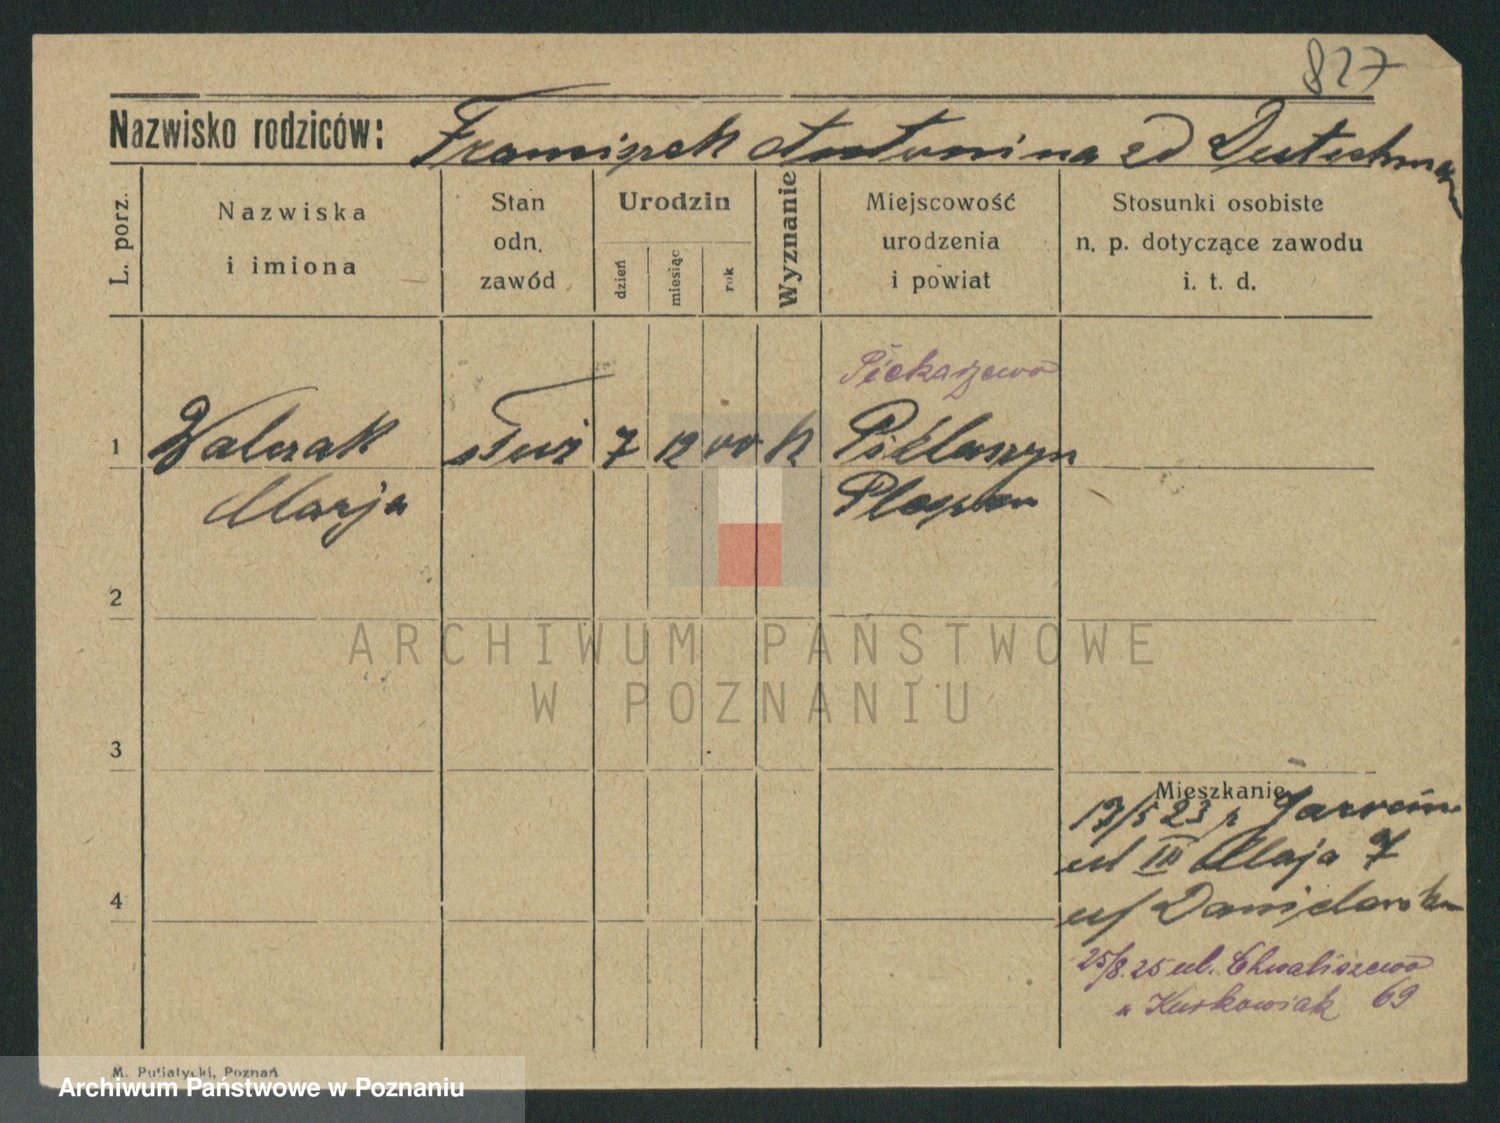 827
Nazwisko rodziców: Franciszek Antonina zd Deutschman
L. porz.
Nazwiska
i imiona
Stan
odn.
zawód
Urodzin
dzień
miesiąc
rok
Wyznanie
Miejscowość
urodzenia
i powiat
Stosunki osobiste
n. p. dotyczące zawodu
i. t. d.
Piekarzewo
1 Walczak służ 7 12 00 k
Marja Pleszew
2
ARCHIWUM PAŃSTWOWE
W POZNANIU
3
Mieszkanie
17/5 23 z Jarocin
ul III Maja 7
4
25/8.25 ul. Chwaliszewo
u Kurkowiak 69
M. Putiatycki, Poznań
Archiwum Państwowe w Poznaniu